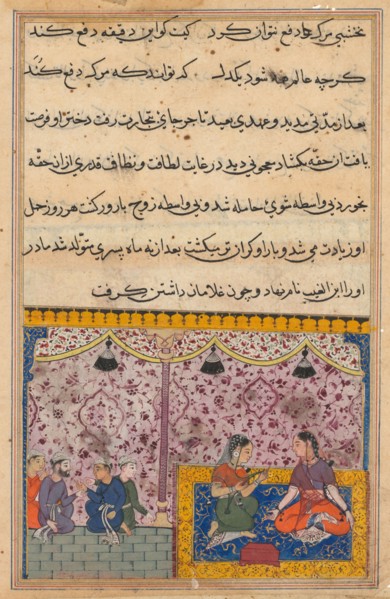 نخشبی مرک جا دفع نتوان کرد کیت کو این دقیقه دفع کند
کرچه عالم همه شود یکدل که توانند که مرک دفع کند
بعد از مدتی مدید و عهدی بعید تاجر جای بتجارت رفت دختر او فرصت
یافت آن حقه بکشاد معجونی دید در غایت لطافت و نظافت قدری از آن حقه
بخورد بی واسطه شوی حامله شد و بی واسطه زوج بارور کشت هر روز حمل
او زیادت می شد و بار او کران تر میکشت بعد از نه ماه پسری متولد شد مادر
او را ابن الغیب نام نهاد و چون غلامان داشتن کرفت